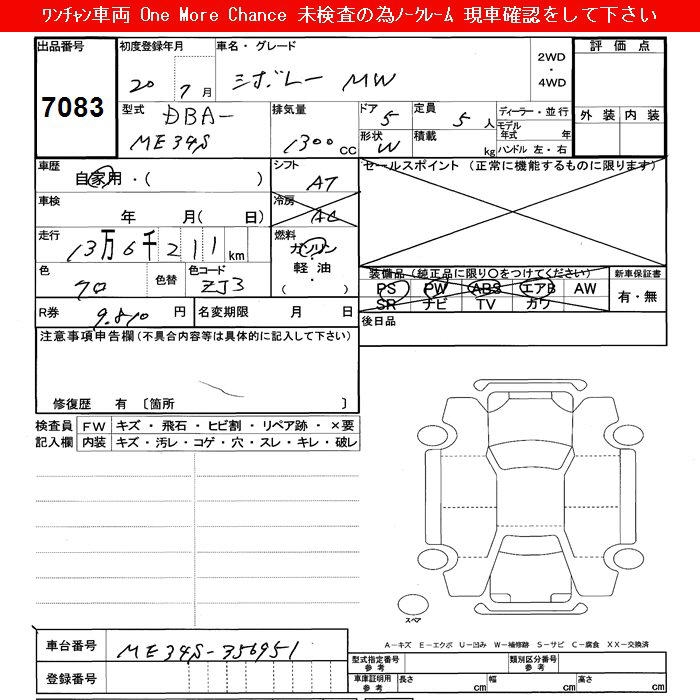 ﾜﾝﾁｬﾝ車両 One More Chance 未検査の為ﾉｰｸﾚｰﾑ 現車確認をして下さい
出品番号 初度登録年月 車名・グレード 2WD・4WD 評価点
7083 20 7月 シボレー MW
型式 DBA- 排気量 ドア 5 定員 5人 ディーラー・並行 外装 内装
ME34S 1300CC 形状 W 積載 kg モデル年式 年
ハンドル 左・右
車歴 シフト セールスポイント (正常に機能するものに限ります)
自家用・( ) AT
車検 冷房
年 月( 日) AC
走行 燃料
13万6千211km ガソリン
軽油・
色 色替 色コード ( ) 装備品(純正品に限り○をつけてください) 新車保証書
70 ZJ3 PS PW ABS エアB AW 有・無
SR ナビ TV カワ
R券 9.810円 名変期限 月 日 後日品
注意事項申告欄(不具合内容等は具体的に記入して下さい)
修復歴 有 〔箇所 〕
検査員 FW キズ・飛石・ヒビ割・リペア跡・×要
記入欄 内装 キズ・汚レ・コゲ・穴・スレ・キレ・破レ
スペア
A-キズ E-エクボ U-凹み W-補修跡 S-サビ C-腐食 XX-交換済
車台番号 ME34S-356951
型式指定番号 参考 類別区分番号 参考
登録番号 車庫証明用 参考 長さ cm 幅 cm 高さ cm